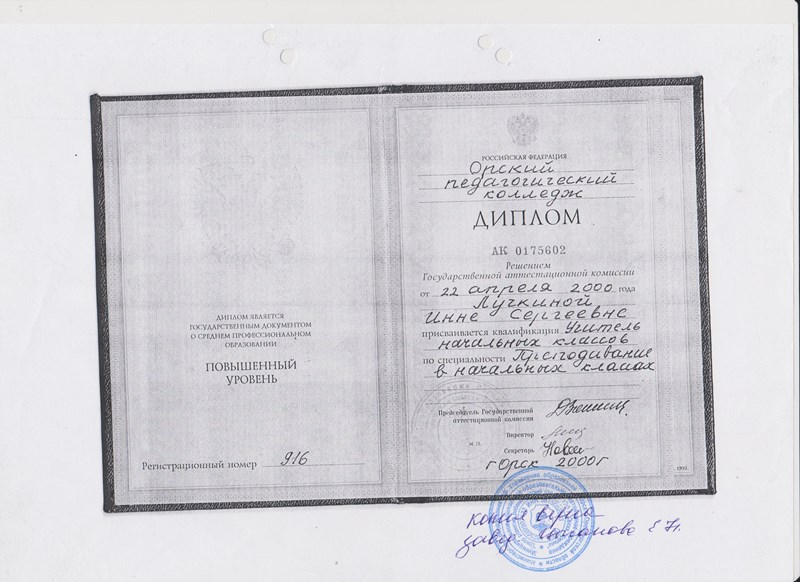 ДИПЛОМ ЯВЛЯЕТСЯ
ГОСУДАРСТВЕННЫМ ДОКУМЕНТОМ
О СРЕДНЕМ ПРОФЕССИОНАЛЬНОМ
ОБРАЗОВАНИИ
ПОВЫШЕННЫЙ
УРОВЕНЬ
Регистрационный номер 916
РОССИЙСКАЯ ФЕДЕРАЦИЯ
Орский
педагогический
колледж
ДИПЛОМ
АК 0175602
Решением
Государственной аттестационной комиссии
от 22 апреля 2000 года
Лучкиной
Инне Сергеевне
присваивается квалификация Учитель
начальных классов
по специальности
в начальных классах
Председатель Государственной
аттестационной комиссии
Директор
М.П.
Секретарь
г Орск 2000г
копия верна